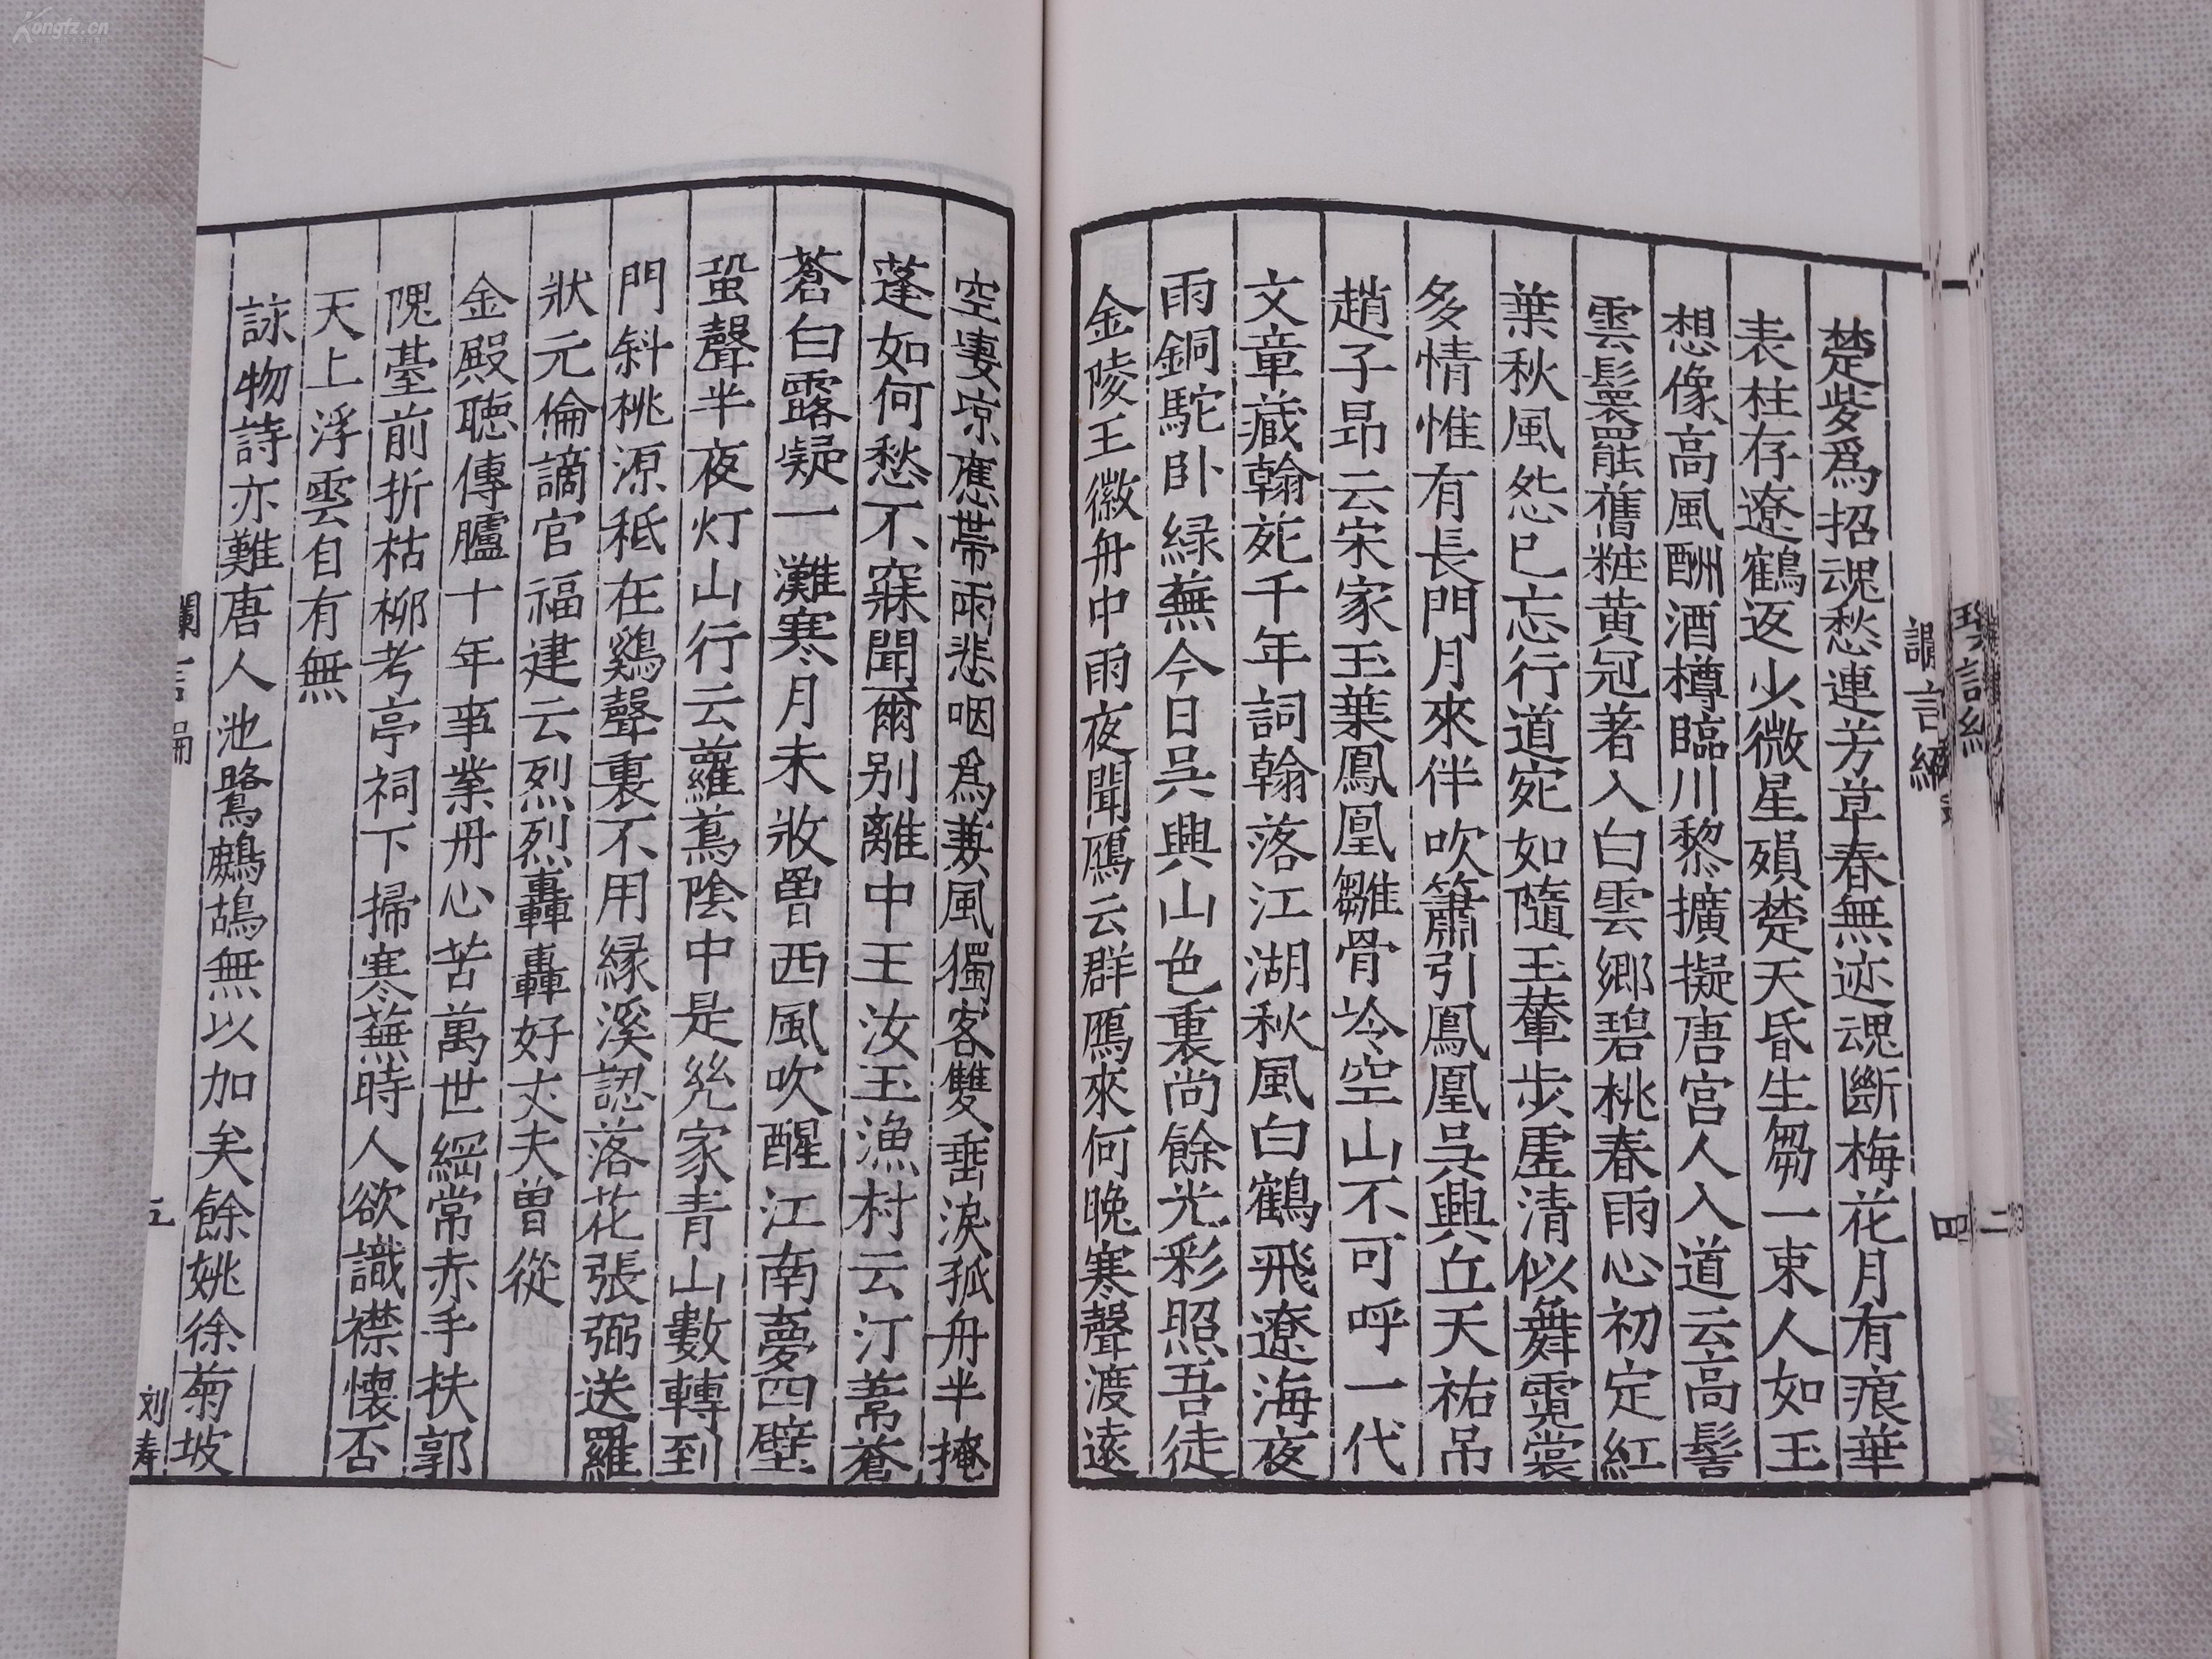 楚些爲招魂愁連芳草春無迹魂斷梅花月有痕華
表柱存遼鶴返少微星殞楚天昏生芻一束人如玉
想像高風酬酒樽臨川黎擴擬唐宮人入道云高髻
雲鬟罷舊粧黃冠著入白雲鄉碧桃春雨心初定紅
葉秋風怨已忘行道宛如隨玉輦步虛清似舞霓裳
多情惟有長門月來伴吹簫引鳳凰吳興丘天祐吊
趙子昂云宋家玉葉鳳凰雛骨冷空山不可呼一代
文章藏翰苑千年詞翰落江湖秋風白鶴飛遼海夜
雨銅駝卧緑蕪今日吳興山色裏尚餘光彩照吾徒
金陵王徽舟中雨夜聞鴈云群鴈來何晚寒聲渡遠
空悽凉應帶雨悲咽爲兼風獨客雙垂淚孤舟半掩
蓬如何愁不寐聞爾别離中王汝玉漁村云汀葦蒼
蒼白露凝一灘寒月未收罾西風吹醒江南夢四壁
蛩聲半夜灯山行云蘿蔦陰中是幾家青山數轉到
門斜桃源秪在鷄聲裏不用緣溪認落花張弼送羅
狀元倫謫官福建云烈烈轟轟好丈夫曽從
金殿聴傳臚十年事業丹心苦萬世綱常赤手扶郭
隗臺前折枯柳考亭祠下掃寒蕪時人欲識襟懷否
天上浮雲自有無
詠物詩亦難唐人池鷺鷓鴣無以加矣餘姚徐菊坡
讕言編
四
讕言編
五
刘寿
Kongfz.cn